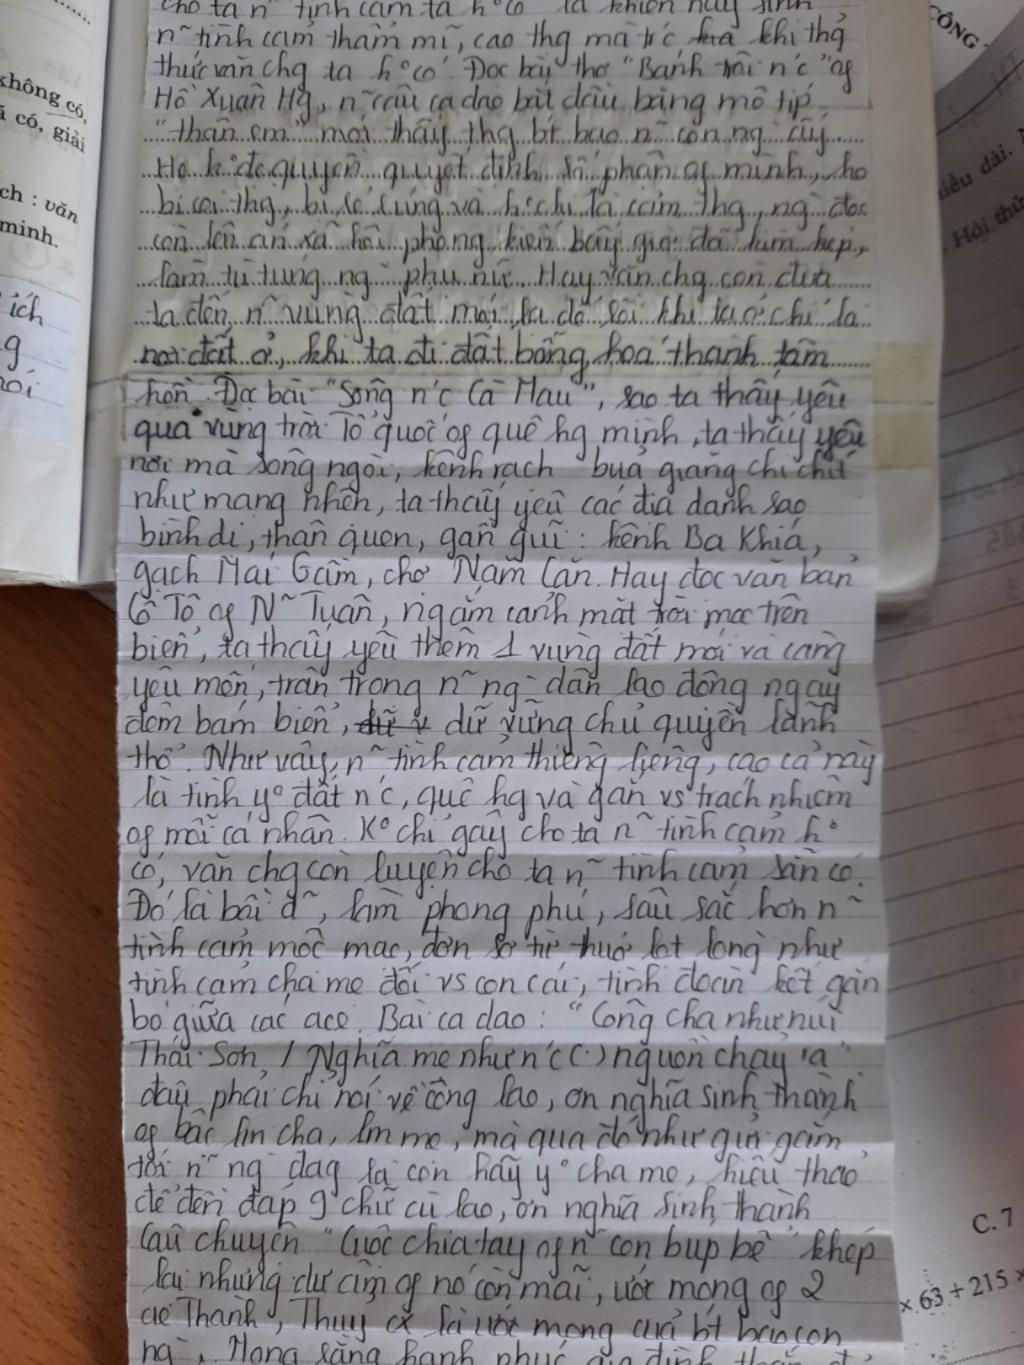 cho ta n~ tình cảm ta k° có là khiến nảy sinh
n~ tình cảm thẩm mĩ, cao thg mà tr'c khi thg
thức văn chg ta k° có. Đọc bài thơ "Bánh trôi n'c" of
Hồ Xuân Hg, n~ câu ca dao bắt đầu bằng mô típ
"thân em" mới thấy thg bt bao n~ con ng` ấy
Họ k° đc quyền quyết định số phận of mình, họ
bị coi thg, bị và k° chỉ là cảm thg, ng` đọc
còn lên án xã hội phong kiến bấy giờ đã kìm kẹp,
làm tù túng ng` phụ nữ. Hay văn chg còn đưa
ta đến n~ vùng đất mới là đó rồi khi ta ở chỉ là
nơi đất ở, khi ta đi đất bỗng hoá thành tâm
hồn. Đọc bài "Sông n'c Cà Mau", sao ta thấy yêu
quá vùng trời Tổ quốc of quê hg mình, ta thấy yêu
nơi mà sông ngòi, kênh rạch bủa giăng chi chít
như mạng nhện, ta thấy yêu các địa danh sao
bình dị, thân quen, gần gũi : kênh Ba Khía,
gạch Mái Gầm, chợ Năm Căn. Hay đọc văn bản
Cô Tô of N~ Tuân, ngắm cảnh mặt trời mọc trên
biển, ta thấy yêu thêm 1 vùng đất mới và càng
yêu mến, trân trọng n~ ng` dân lao động ngày
đêm bám biển, dữ vững chủ quyền lãnh
thổ. Như vậy, n~ tình cảm thiêng liêng, cao cả này
là tình y° đất n'c, quê hg và gắn vs trách nhiệm
of mỗi cá nhân. K° chỉ gây cho ta n~ tình cảm k°
có, văn chg còn luyện cho ta n~ tình cảm sẵn có.
Đó là bồi d~, làm phong phú, sâu sắc hơn n~
tình cảm mộc mạc, đơn sơ từ thuở lọt lòng như
tình cảm cha mẹ đối vs con cái, tình đoàn kết gắn
bó giữa các ace. Bài ca dao : "Công cha như núi
Thái Sơn / Nghĩa mẹ như n'c (.) nguồn chảy ra"
đâu phải chỉ nói về công lao, ơn nghĩa sinh thành
of bậc làm cha, làm mẹ, mà qua đó như gửi gắm
tới n~ ng` đag là con hãy y° cha mẹ, hiếu thảo
để đền đáp 9 chữ cù lao, ơn nghĩa sinh thành
Câu chuyện "Cuộc chia tay of n~ con búp bê" khép
lại nhưng dư âm of nó còn mãi, ước mong of 2
ae Thành, Thuỷ cx là ước mong của bt bao con
ng`, Mong rằng hạnh phúc gia đình
không có,
có, giải
ch : văn
minh.
ích
CÔNG
hiểu dài.
. Hỏi thử
C. 7
× 63 + 215 ×